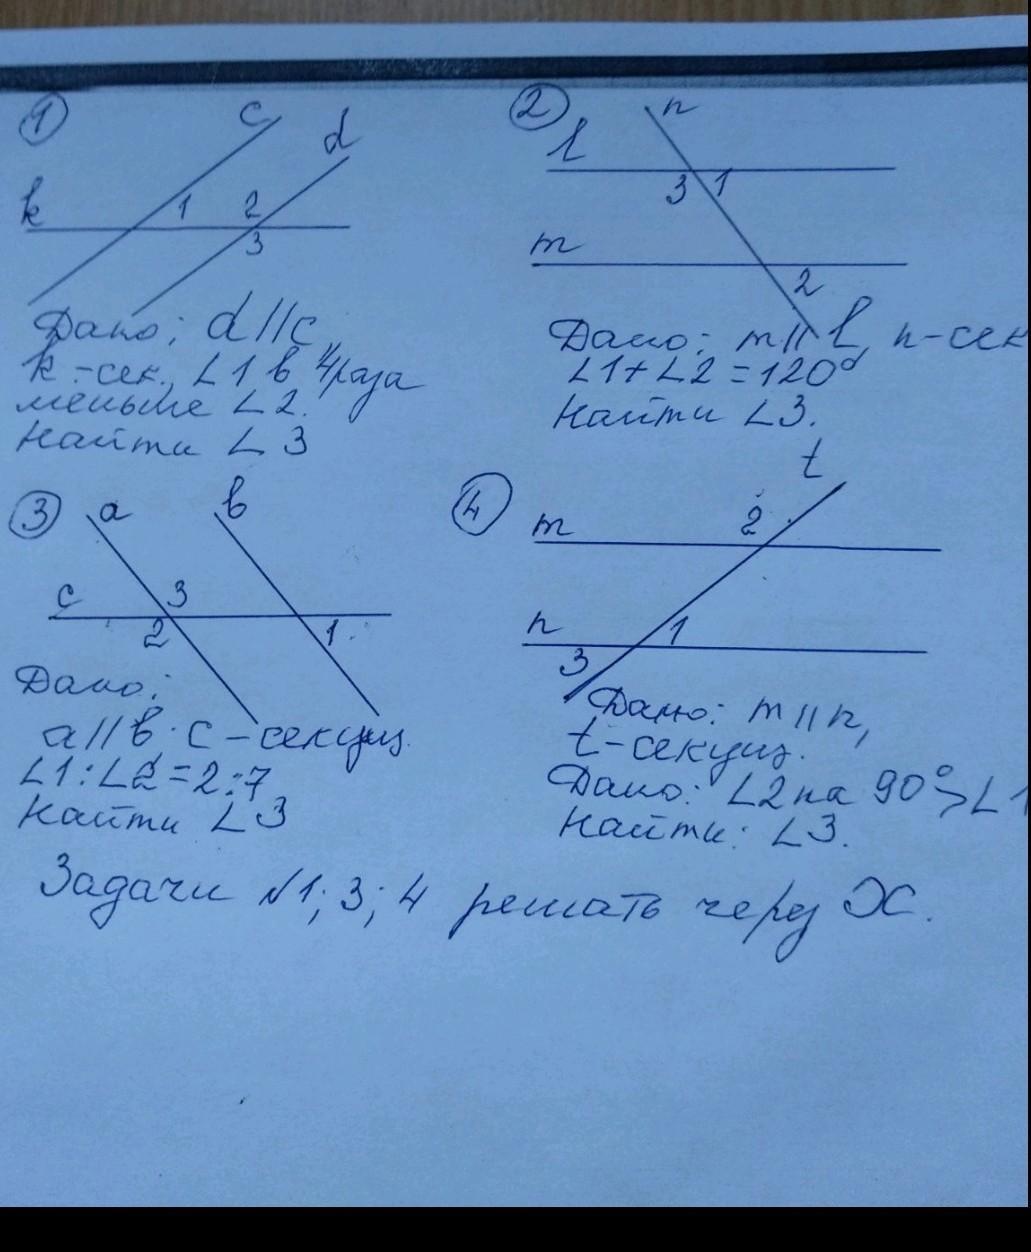 1
c
d
k
1
2
3
Дано: d//c,
k-сек., ∠1 в 4раза
меньше ∠2.
Найти ∠3
2
n
l
3 1
m
2
Дано: m//l, n-сек
∠1+∠2=120°
Найти ∠3.
3
a
b
c
3
2
1
Дано:
a//b; c-секущ.
∠1:∠2=2:7
Найти ∠3
4
t
m
2
n
1
3
Дано: m//n,
t-секущ.
Дано: ∠2 на 90°>∠1
Найти: ∠3.
Задачи №1; 3; 4 решать через X.